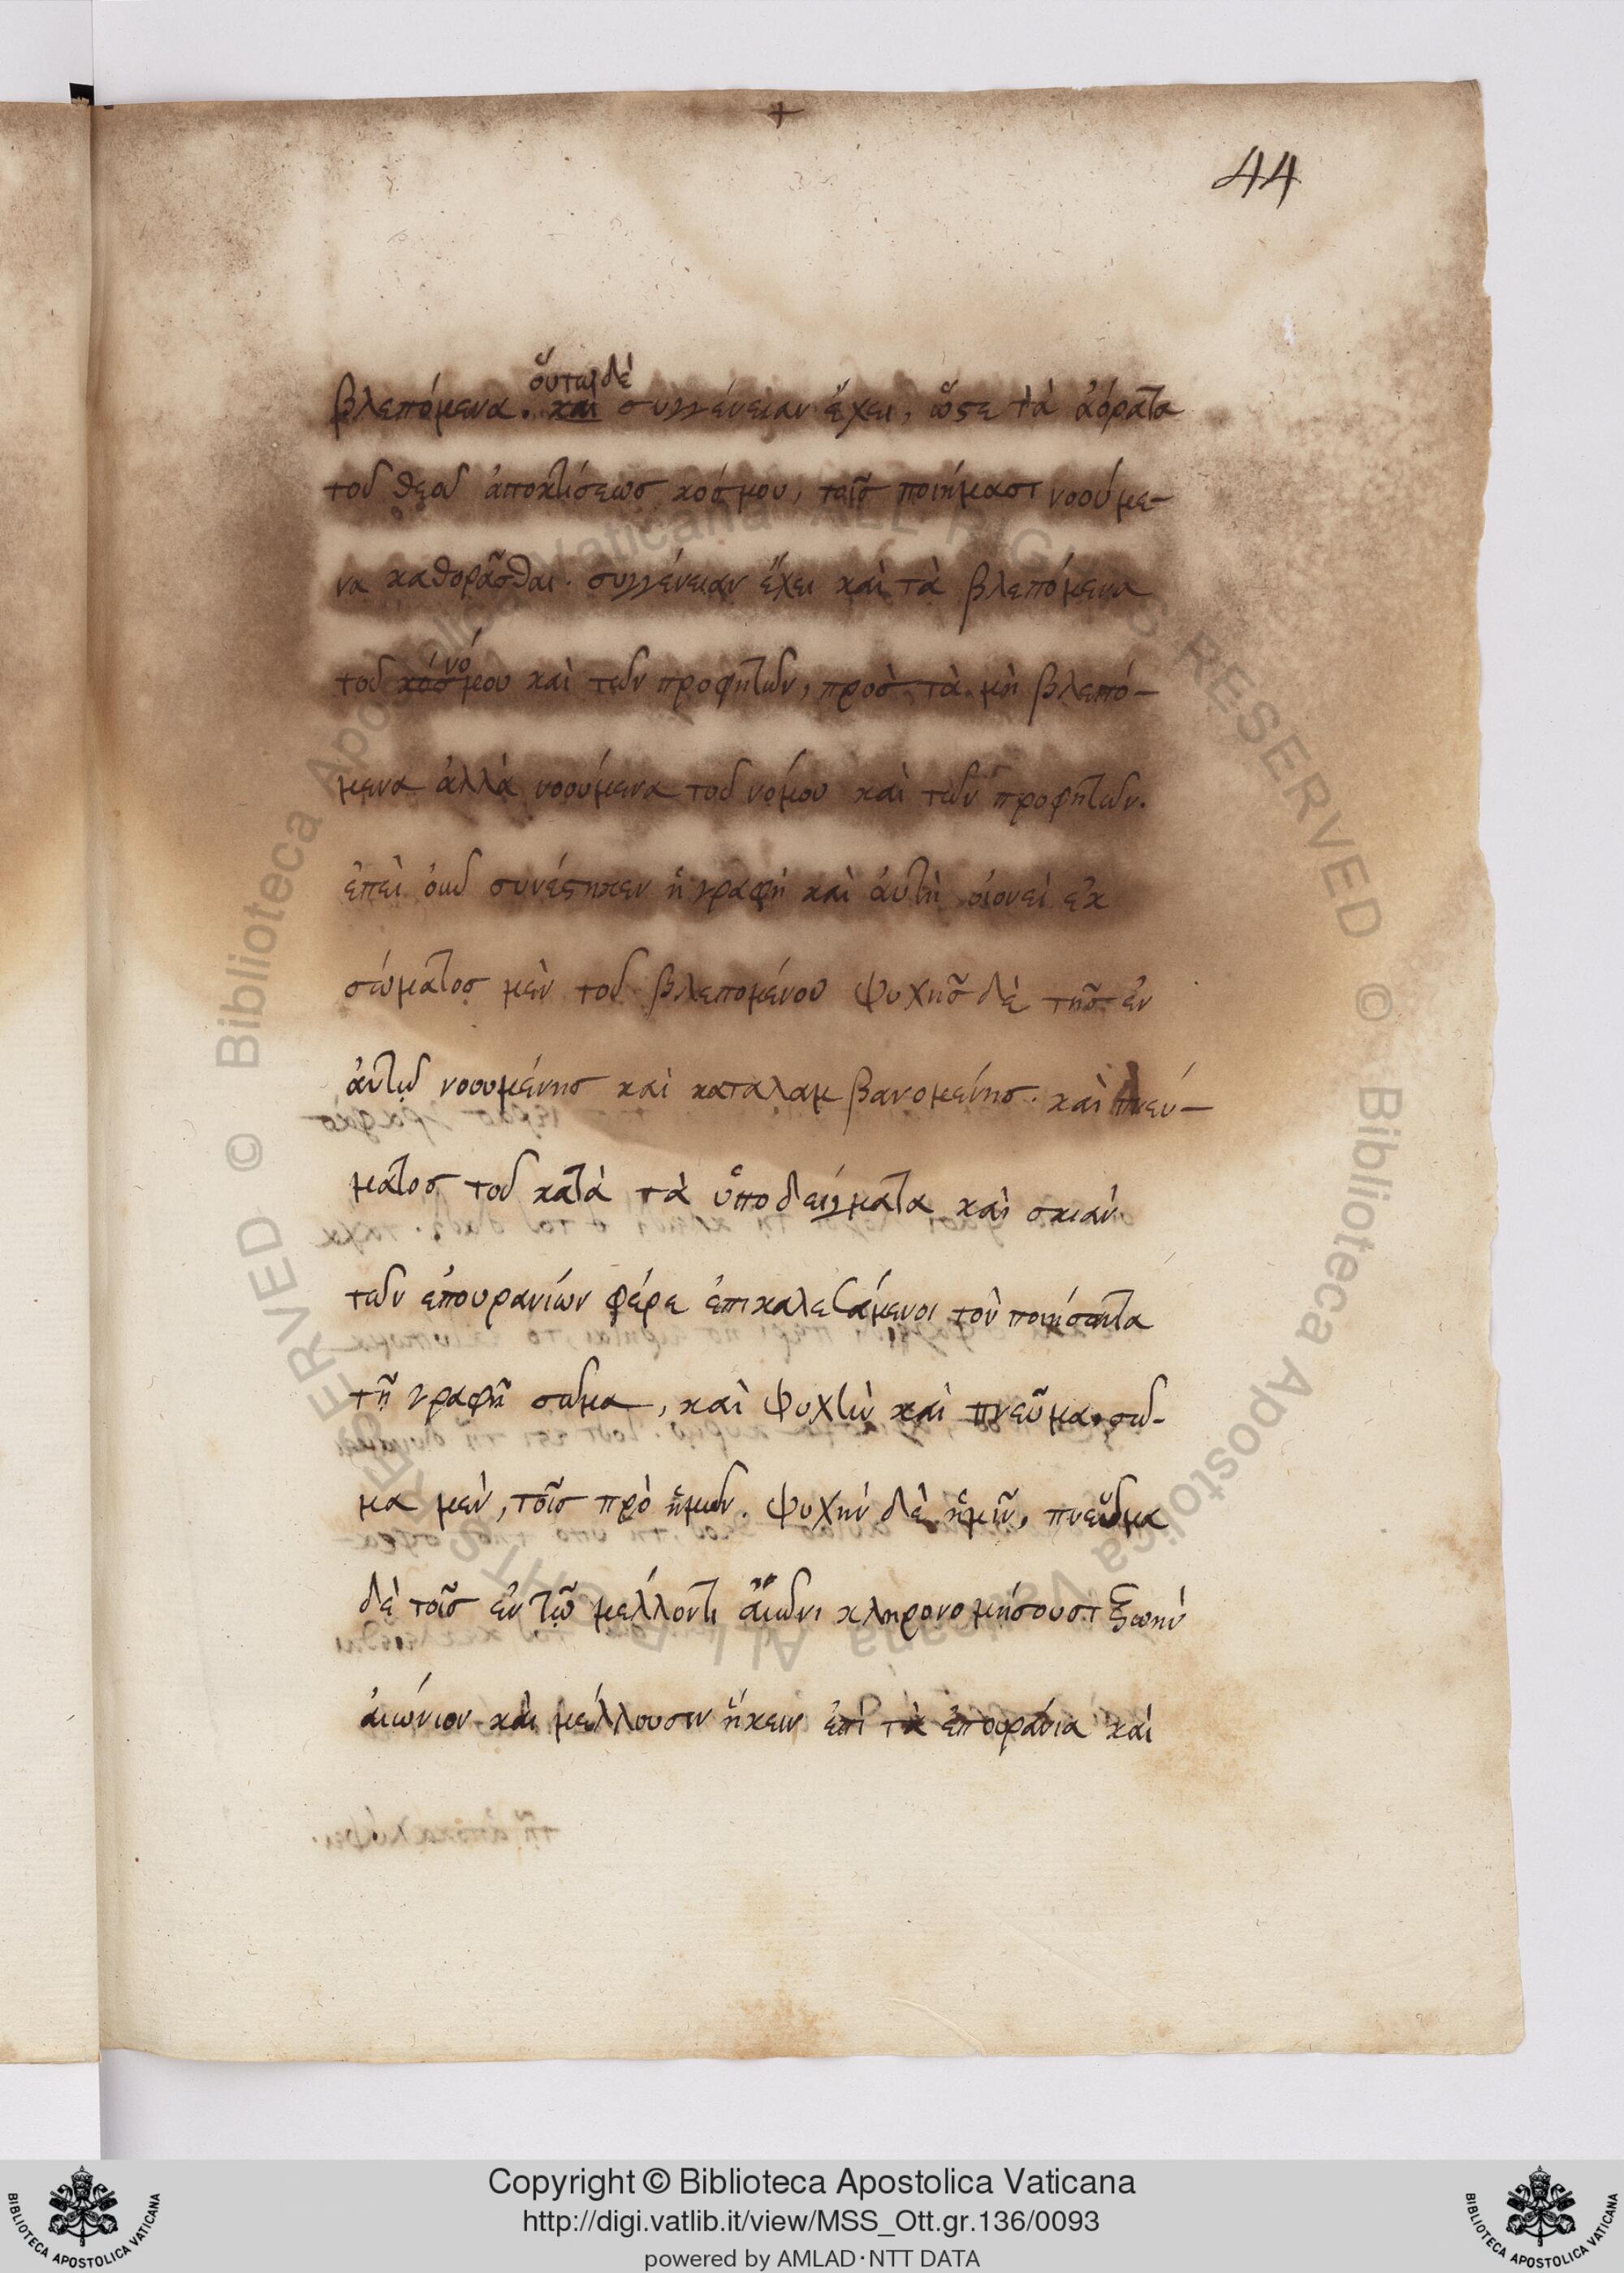 +
44
οὕτω δὲ
βλεπόμενα. καὶ συγγένειαν ἔχει, ὥστε τὰ ἀόρατα
τοῦ θεοῦ ἀποκτίσεως κόσμου, ταῖς ποιήμασι νοούμε-
να καθορᾶσθαι. συγγένειαν ἔχει καὶ τὰ βλεπόμενα
νό
τοῦ κόσμου καὶ τῶν προφητῶν, πρὸς τὰ μὴ βλεπό-
μενα ἀλλὰ νοούμενα τοῦ νόμου καὶ τῶν προφητῶν.
ἐπεὶ οὖν συνέστηκεν ἡ γραφὴ καὶ ἀυτὴ οἱονεὶ ἐκ
σώματος μὲν τοῦ βλεπομένου ψυχῆς δὲ τῆς ἐν
ἀυτῷ νοουμένης καὶ καταλαμβανομένης. καὶ πνεύ-
ματος τοῦ κατὰ τὰ ὑποδείγματα καὶ σκιὰν
τῶν ἐπουρανίων φέρε ἐπικαλεσάμενοι τὸν ποιήσαντα
τῇ γραφῇ σῶμα, καὶ ψυχὴν καὶ πνεῦμα. σῶ-
μα μὲν, τοῖς πρὸ ἡμῶν. ψυχὴν δὲ ἡμῖν, πνεῦμα
δὲ τοῖς ἐν τῷ μέλλοντι ἀιῶνι κληρονομήσουσι ζωὴν
ἀιώνιον καὶ μέλλουσιν ἥκειν ἐπὶ τὰ ἐπουράνια καὶ
Copyright © Biblioteca Apostolica Vaticana
http://digi.vatlib.it/view/MSS_Ott.gr.136/0093
powered by AMLAD·NTT DATA
BIBLIOTECA APOSTOLICA VATICANA
BIBLIOTECA APOSTOLICA VATICANA